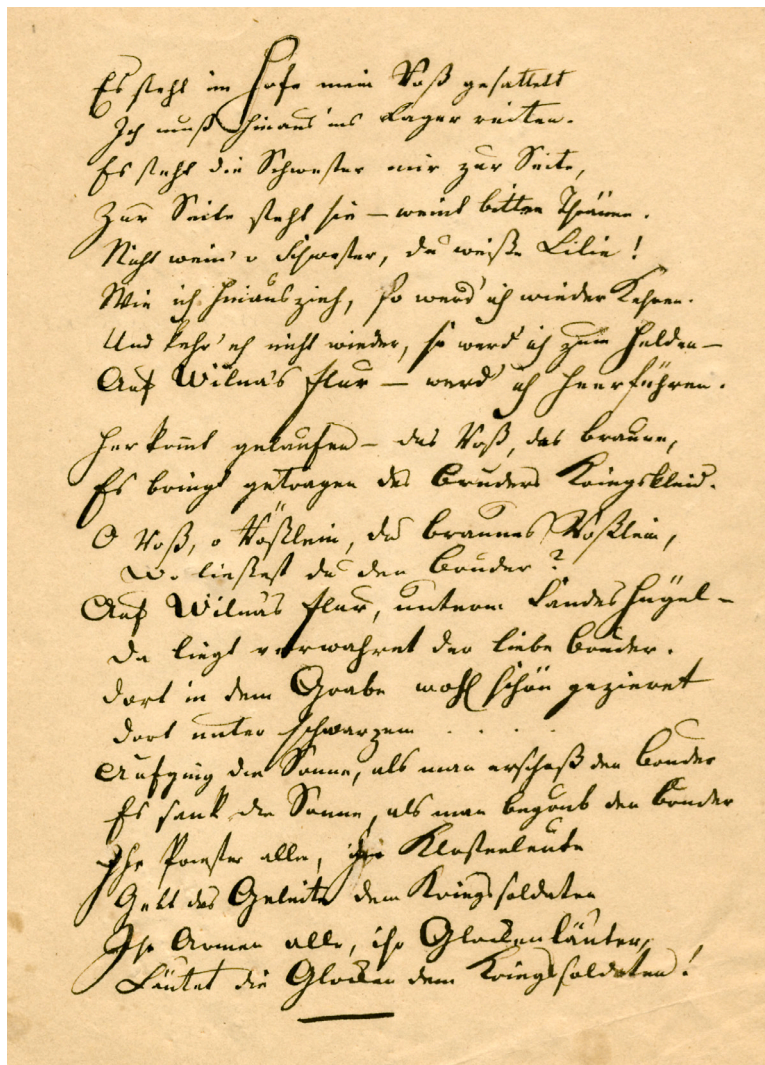 Es steht im Hofe mein Roß gesattelt
Ich muß hinaus ins Lager reiten.
Es steht die Schwester mir zur Seite,
Zur Seite steht sie – weint bittre Thränen.
Nicht wein' o Schwester, du weiße Lilie!
Wie ich hinauszieh, so werd' ich wieder kehren.
Und kehr' ich nicht wieder, so werd' ich zum Helden –
Auf Wilna's Flur – werd' ich Heerführen.
Her kom̄t gelaufen – das Roß, das braune,
Es bringt getragen des Bruders Kriegskleid.
O Roß, o Rößlein, du braunes Rößlein,
Wo ließest du den Bruder?
Auf Wilnas Flur, unterm Landeshügel –
Da liegt verwahret der liebe Bruder.
Dort in dem Grabe wohl schön gezieret
Dort unter schwarzem . . . .
Aufging die Sonne, als man erschoß den Bruder
Es sank die Sonne, als man begrub den Bruder
Ihr Priester alle, ihr Klosterleute
Gebt das Geleite dem Kriegssoldaten
Ihr Armen alle, ihr Glockenläuter,
Läutet die Glocken dem Kriegssoldaten!